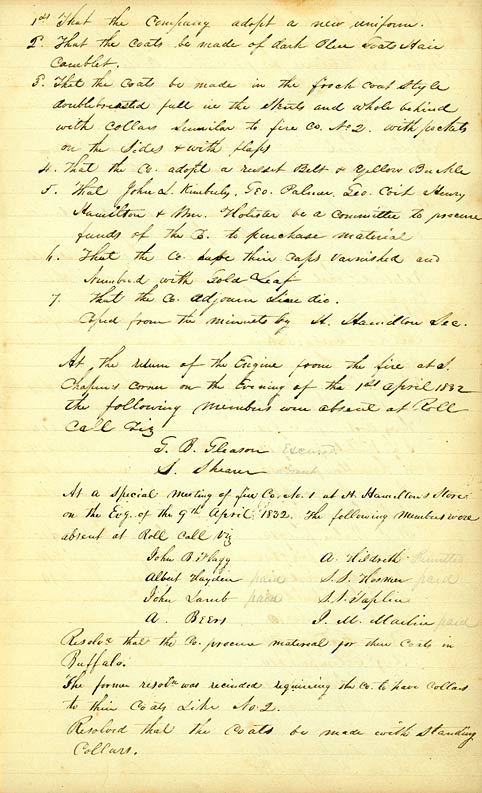 1st That the Company adopt a new uniform.
2. That the coats be made of dark Blue Goats Hair
Camblet.
3. That the coats be made in the frock coat style
doublebreasted full in the skirts and whole behind
with collars similar to fire Co. No 2. with pockets
on the sides & with flaps
4. That the Co. adopt a russet Belt & Yellow Buckle
5. That John L. Kimberly, Geo. Palmer, Geo. Coit Henry
Hamilton & Wm. Holister be a committee to procure
funds of the to purchase material
6. That the Co. have their caps varnished and
Numbered with Gold Leaf
7. that the Co. adjourn Sine dio.
Copied from the minnets by H. Hamilton Sec.
At the return of the Engine from the fire at S.
Chapin's corner on the Evening of the 1st April 1832
the following members were absent at Roll
Call Viz
G. B. Gleason Excused
S. Shearer
At a special meeting of fire Co. No. 1 at H. Hamilton's Store
on the Evg. of the 9th April 1832. The following Members were
absent at Roll Call Viz
John B. Flagg A. Hildreth Remitted
Albert Hayden paid S. S. Hosmer paid
John Lamb paid S. S. Taplin
A. Beers J. M. paid
Resolvd that the Co. procure material for their Coats in
Buffalo.
The former resoln was recinded requiring the Co. to have Collars
to their Coats Like No. 2.
Resolved that the Coats be made with Standing
Collars.